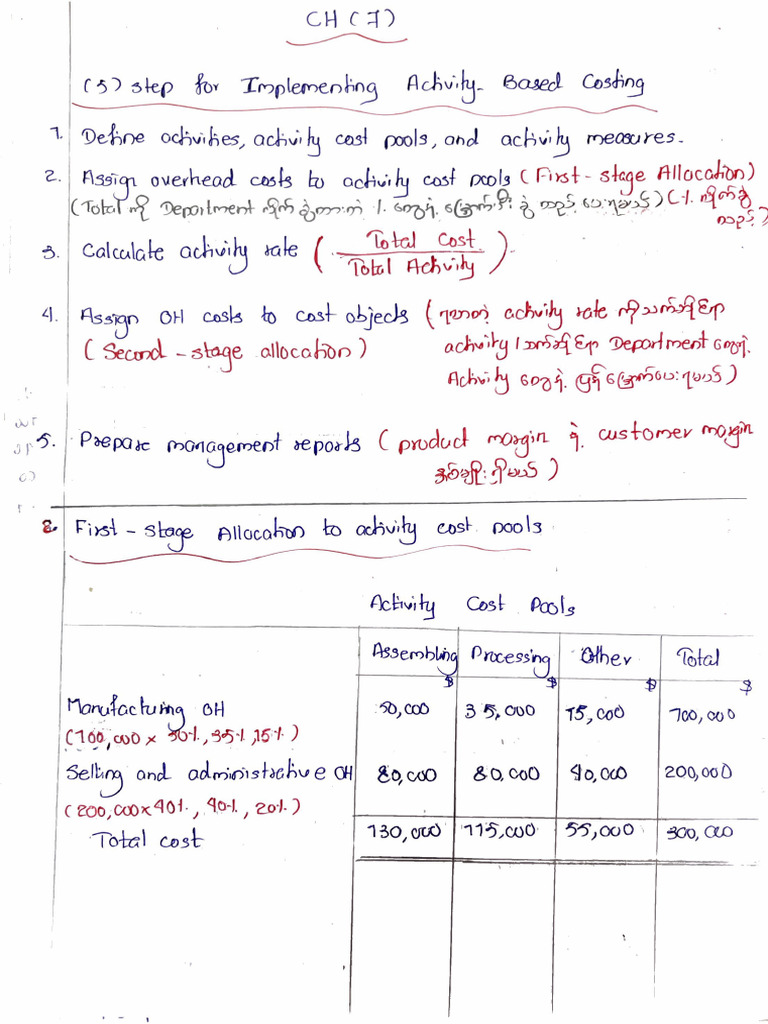 CH (7)
(5) step for Implementing Activity-Based Costing
1. Define activities, activity cost pools, and activity measures.
2. Assign overhead costs to activity cost pools (First-stage Allocation)
(Total ကို Department လိုက်ခွဲထားတဲ့ % တွေနဲ့ မြှောက်ပြီး ခွဲ ပေးရမယ်) (% လိုက်ခွဲ
3. Calculate activity rate (Total Cost / Total Activity)
4. Assign OH costs to cost objects (ရလာတဲ့ activity rate ကိုသက်ဆိုင်ရာ
(Second-stage allocation) activity / သက်ဆိုင်ရာ Department တွေရဲ့
Activity တွေနဲ့ ပြန်မြှောက်ပေးရမယ်)
5. Prepare management reports (product margin နဲ့ customer margin
နှစ်မျိုးရှိမယ်)
2. First-stage Allocation to activity cost pools
Activity Cost Pools
Assembling Processing Other Total
$ $ $ $
Manufacturing OH 50,000 35,000 15,000 100,000
(100,000 x 50%, 35%, 15%)
Selling and administrative OH 80,000 80,000 40,000 200,000
(200,000x40%, 40%, 20%)
Total cost 130,000 115,000 55,000 300,000